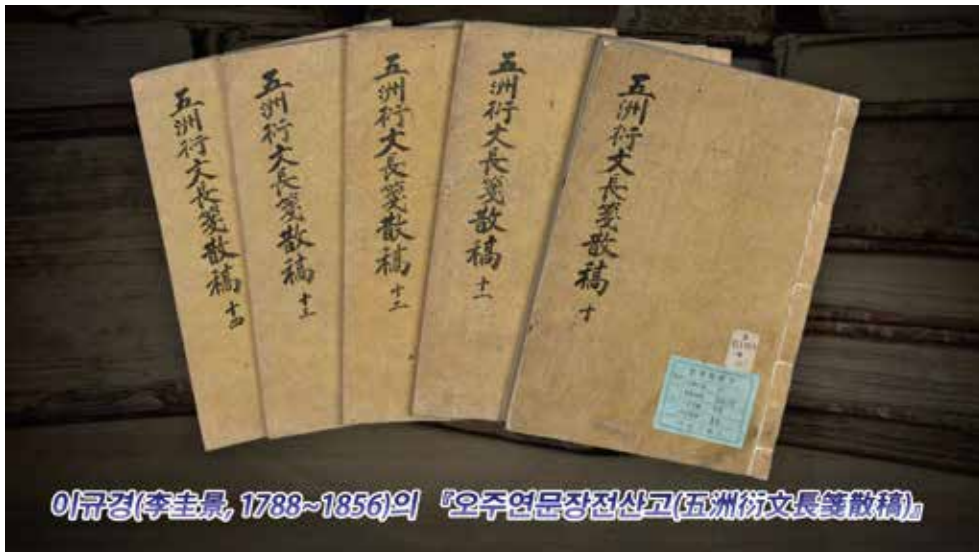 五洲衍文長箋散稿 十
五洲衍文長箋散稿 十一
五洲衍文長箋散稿 十二
五洲衍文長箋散稿 十三
五洲衍文長箋散稿 十四
이규경(李圭景, 1788~1856)의 『오주연문장전산고(五洲衍文長箋散稿)』